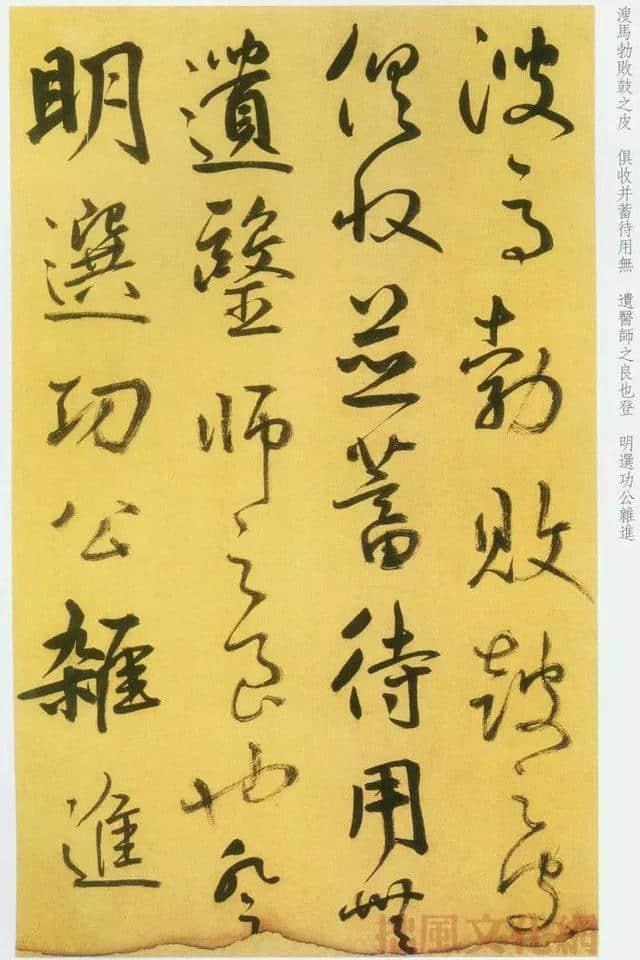 溲馬勃敗鼓之皮　俱收并蓄待用無　遺醫師之良也登　明選功公雜進
溲馬勃敗鼓之皮
俱收並蓄待用無
遺醫師之良也登
明選功公雜進
拙風文化網